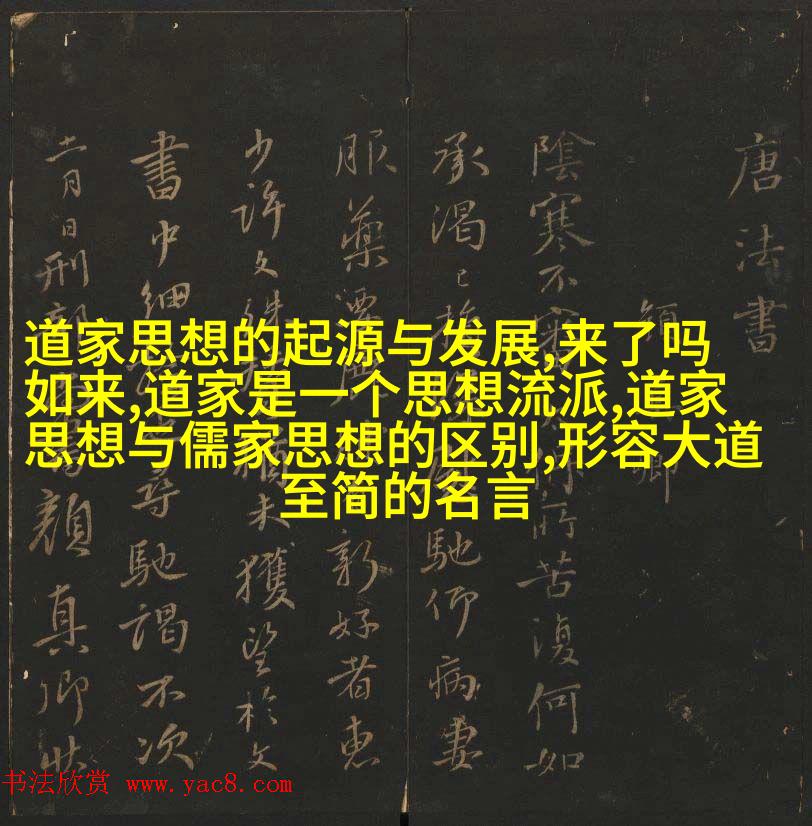 道家思想的起源与发展,来了吗
如来,道家是一个思想流派,道家
思想与儒家思想的区别,形容大道
至简的名言
唐法書
卿
陰寒不所苦復何如
承渴已馳仰病妻
服藥新好者惠
少許文未獲望於文
書中細尋馳謁不次
十一月日刑部顏真卿狀
书法欣赏 www.yac8.com